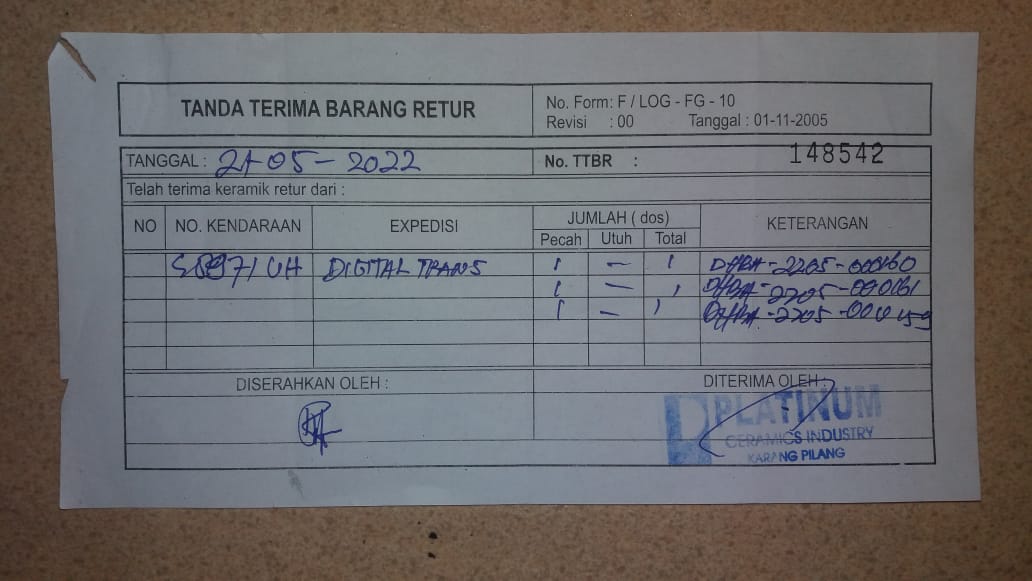 TANDA TERIMA BARANG RETUR
No. Form: F / LOG - FG - 10
Revisi : 00 Tanggal : 01-11-2005
TANGGAL : 21-05-2022 No. TTBR : 148542
Telah terima keramik retur dari :
NO NO. KENDARAAN EXPEDISI JUMLAH ( dos) KETERANGAN
Pecah Utuh Total
S 8971 UH DIGITAL TRANS 1 - 1 -2205-000160
1 - 1 -2205-000161
1 - 1 -2205-000159
DISERAHKAN OLEH : DITERIMA OLEH :
PLATINUM
CERAMICS INDUSTRY
KARANG PILANG